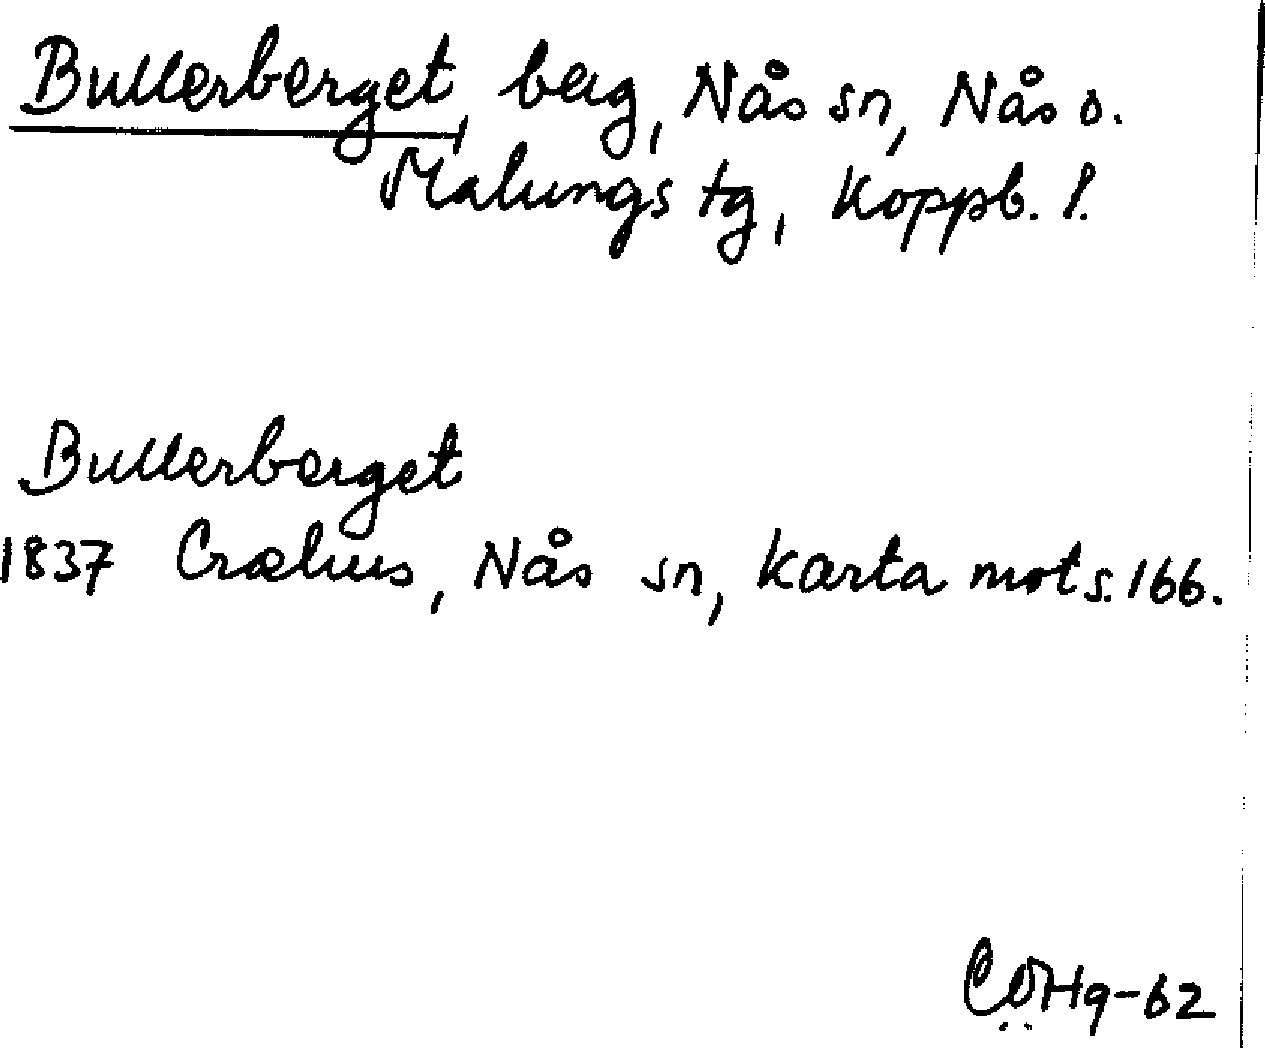 Bullerberget, berg, Nås sn, Nås o.
Malungs tg, Koppb. l.
Bullerberget
1837 Crælius, Nås sn, Karta mot s. 166.
CÖHg-62